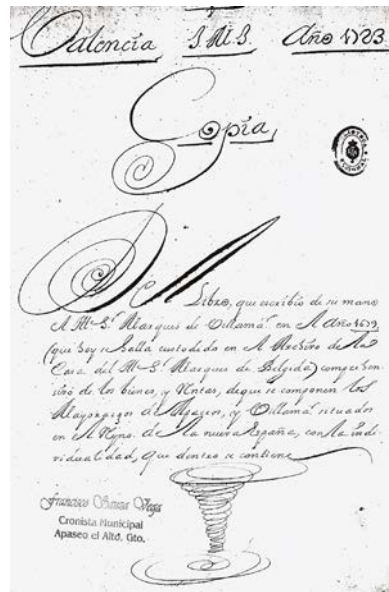 Valencia, J. M. J. Año 1723.
Copia,
Del
Libro, que escribió de su mano
el Mᵉ. Sʳ. Marques de Villamaʳ. en el Año 1679,
(que hoy se halla custodido en el Archivo de la
Casa del Mᵉ. Sʳ. Marques de Belgida) comprehen-
sivo de los bienes, y Rentas, de que se componen los
Mayorazgos de Apaseo, y Villamaʳ. situados
en el Reyno. de la nueva España, con la indi-
vidualidad, que dentro se contiene
Francisco Sauza Vega
Cronista Municipal
Apaseo el Alto, Gto.